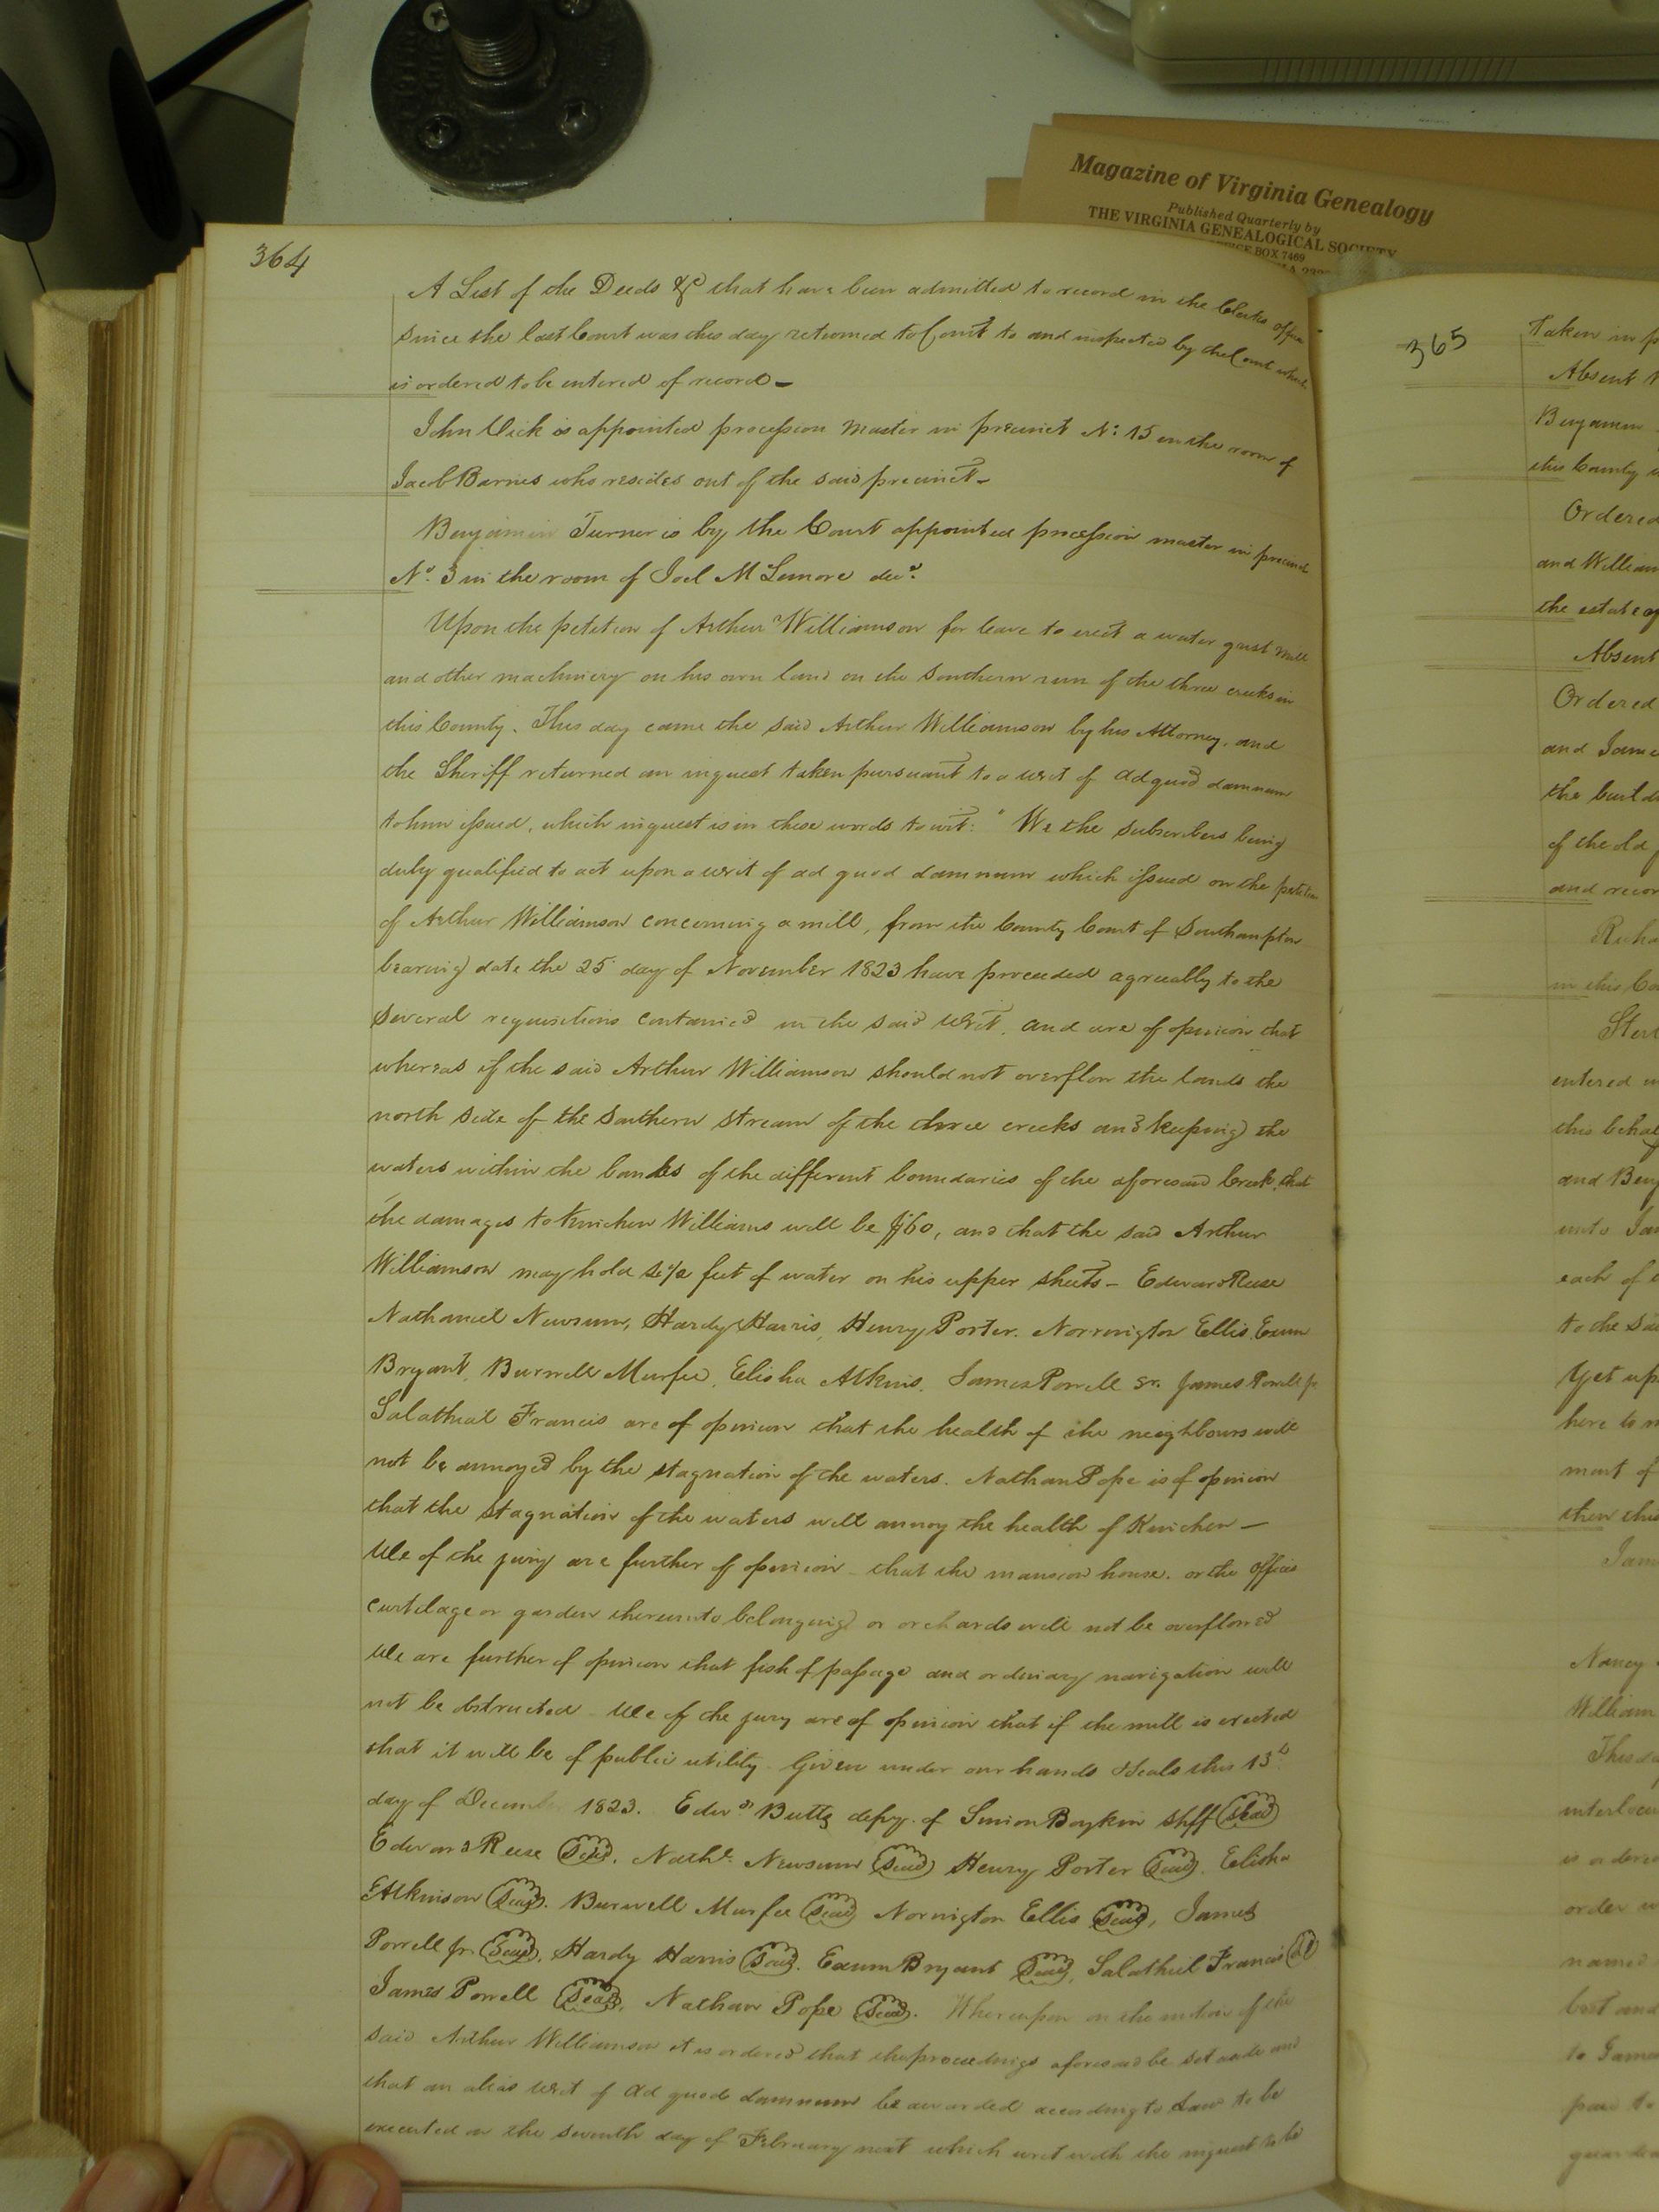 Magazine of Virginia Genealogy
Published Quarterly by
THE VIRGINIA GENEALOGICAL SOCIETY
BOX 7469
364
A List of the Deeds &c that have been admitted to record in the Clerks office
since the last Court was this day returned to Court to and inspected by the Court which
is ordered to be entered of record—
John Vick is appointed procession master in precinct No: 15 in the room of
Jacob Barnes who resides out of the said precinct—
Benjamin Turner is by the Court appointed procession master in precinct
No. 3 in the room of Joel McLemore decd.
Upon the petition of Arthur Williamson for leave to erect a water grist mill
and other machinery on his own land on the Southern run of the three creeks in
this County. This day came the said Arthur Williamson by his Attorney, and
the Sheriff returned an inquest taken pursuant to a writ of ad quod damnum
to him issued, which inquest is in these words to wit: "We the subscribers being
duly qualified to act upon a writ of ad quod damnum which issued on the petition
of Arthur Williamson concerning a mill, from the County Court of Southampton
bearing date the 25 day of November 1823 have proceeded agreeably to the
several requisitions contained in the said writ, and are of opinion that
whereas if the said Arthur Williamson should not overflow the lands the
north side of the Southern stream of the three creeks and keeping the
waters within the banks of the different boundaries of the aforesaid Creek, that
the damages to Kinchen Williams will be $60, and that the said Arthur
Williamson may hold feet of water on his upper sheets— Edward Reese
Nathaniel Newsum, Hardy Harris, Henry Porter. Norrington Ellis, Exum
Bryant, Burwell Murfee, Elisha Atkins, James Powell Sr. James Powell jr
Salathial Francis are of opinion that the health of the neighbours will
not be annoyed by the stagnation of the waters. Nathan Pope is of opinion
that the stagnation of the waters will annoy the health of Kinchen—
We of the jury are further of opinion that the mansion house. or the offices
curtilage or garden thereunto belonging or orchards will not be overflowed
We are further of opinion that fish of passage and ordinary navigation will
not be obstructed We of the jury are of opinion that if the mill is erected
that it will be of public utility. Given under our hands & seals this 13th
day of December 1823. Edwd Butts depy. of Simion Boykin Shff (Seal)
Edward Reese (Seal). Nathl. Newsum (Seal) Henry Porter (Seal). Elisha
Atkinson (Seal). Burwell Murfee (Seal) Norrington Ellis (Seal), James
Powell jr. (Seal). Hardy Harris (Seal). Exum Bryant (Seal), Salathiel Francis
James Powell (Seal), Nathan Pope (Seal). Whereupon on the motion of the
said Arthur Williamson it is ordered that the proceedings aforesaid be set aside and
that an alias writ of ad quod damnum be awarded according to Law to be
executed on the seventh day of February next which writ with the inquest to be
365
Taken in
Absent
Benjamin
this County
Ordered
and William
the estate of
Absent
Ordered
and
the
of the old
and
in this
entered
this
and
unto
each of
to the
Yet
here
of
then
Nancy
William
is ordered
order
named
to James